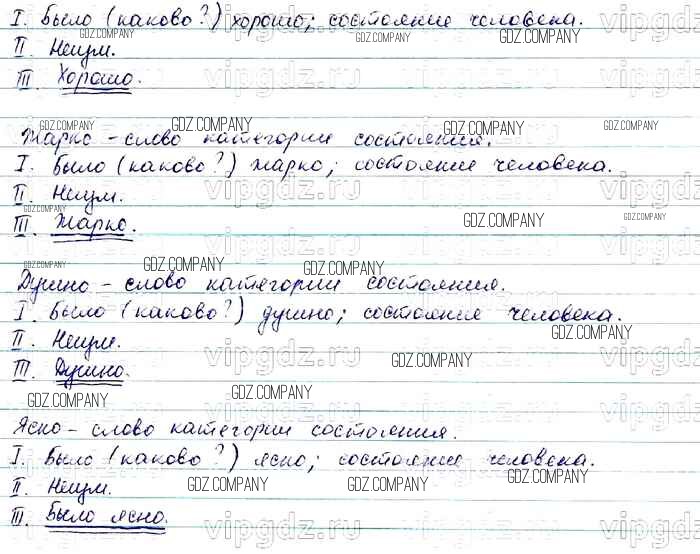 I. Было (каково?) хорошо; состояние человека.
II. Неизм.
III. Хорошо.
Жарко - слово категории состояния.
I. Было (каково?) жарко; состояние человека.
II. Неизм.
III. Жарко.
Душно - слово категории состояния.
I. Было (каково?) душно; состояние человека.
II. Неизм.
III. Душно.
Ясно - слово категории состояния.
I. Было (каково?) ясно; состояние человека.
II. Неизм.
III. Было ясно.
GDZ.COMPANY
vipgdz.ru